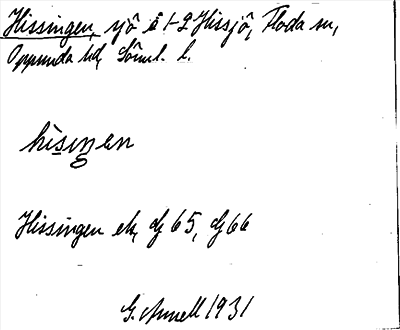 Hissingen, sjö å 1-2 Hissjö, Floda sn,
Oppunda hd, Söml. l.
hìsiŋen
Hissingen ek, dJ 65, dJ 66
G. Arnell 1931